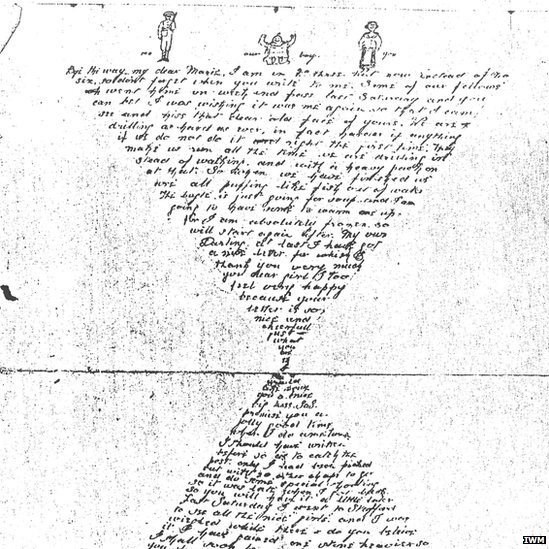 me our boy. you
By the way, my dear Marie, I am in the hut now instead of the
six, so don't forget when you write to me. Some of our fellows
went home on week end pass last Saturday and you
can bet I was wishing it was me again so that I could
see and kiss that dear old face of yours. We are
drilling as hard as ever, in fact harder if anything
if we do not do it right the first time. They
make us run all the time we are drilling in
stead of walking, and with a heavy pack on
at that. So when we have finished we
are all puffing like fish out of water
The bugle is just going for soup and I am
going to have some to warm me up.
for I am absolutely frozen, so
will start again after. My own
Darling, at last I have got
a nice letter for which I
thank you very much
you dear girl I too
feel very happy
because your
letter is so
nice and
cheerfull
just
what
you
would
give you
you a nice
big kiss. So I
promise you a
jolly good time
when I do come home
I should have written
before so as to catch the
post, only I had been picked
out with six other chaps to go
and do some special
so it was late when I got back
so you will have it a little later
Last Saturday I went to Stafford
to see all the nice girls and I was
weighed while there & do you believe
it I have gained one stone heavier so
IWM